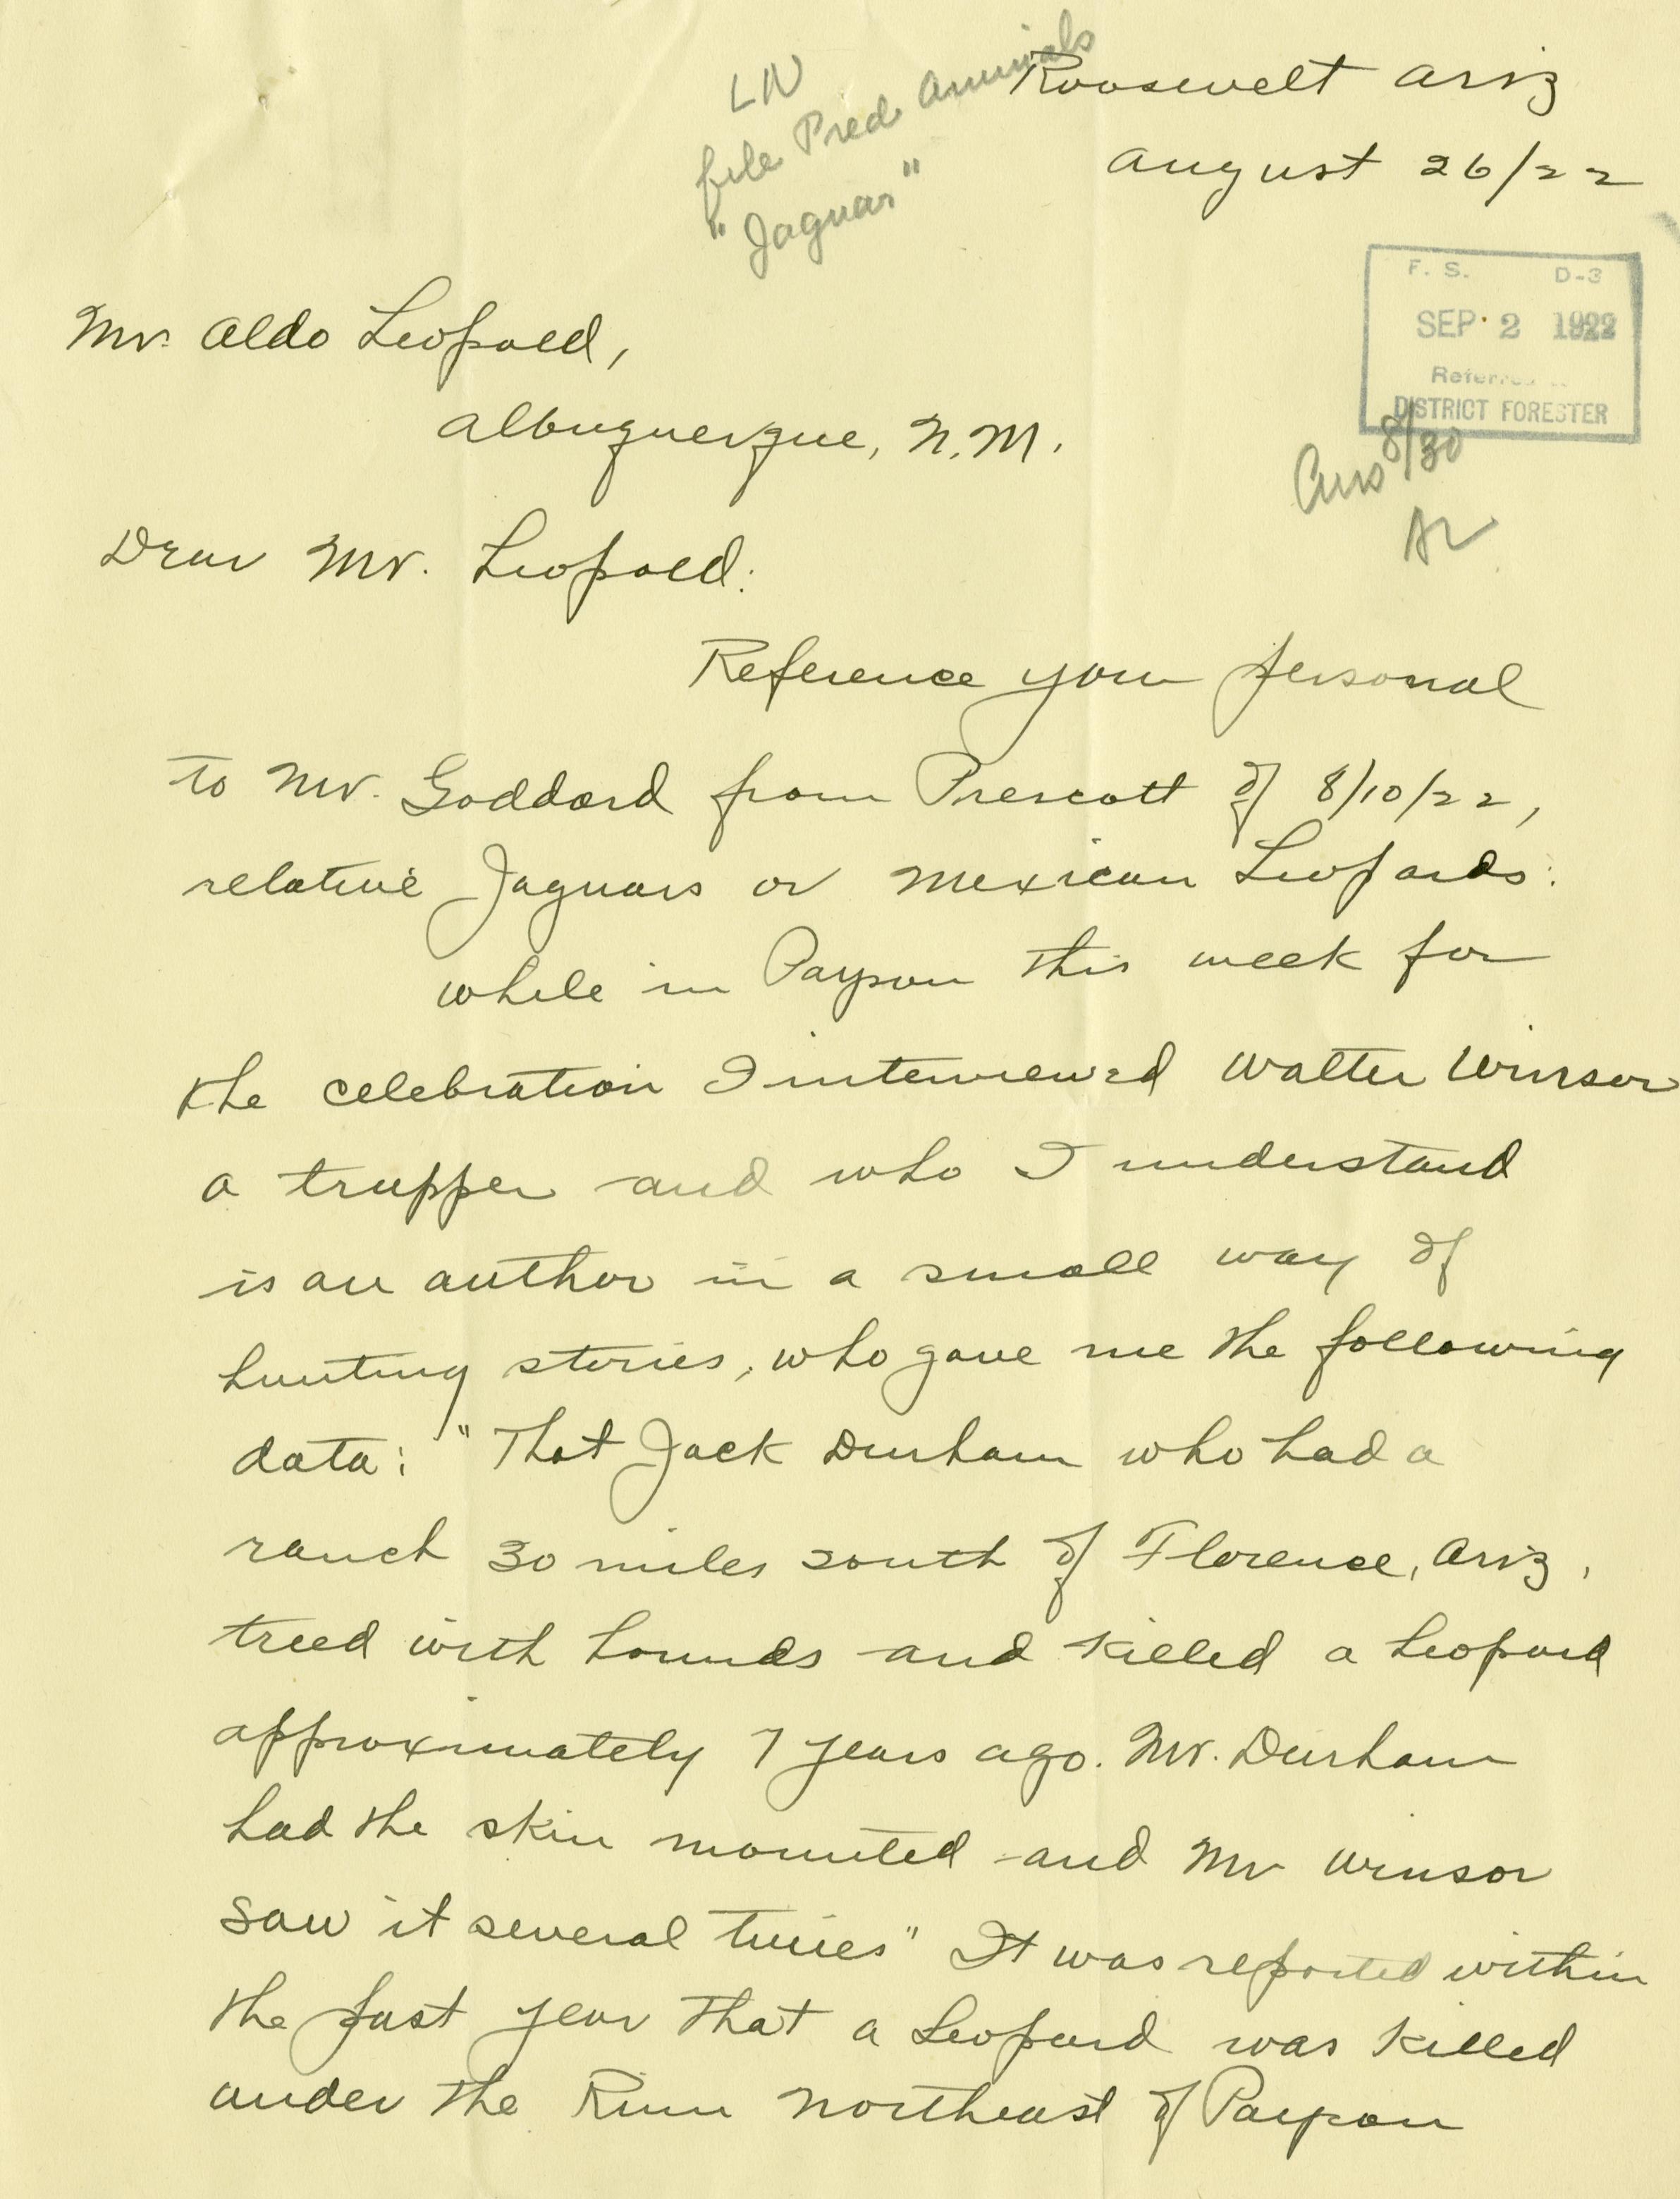 LN
file Pred Animals
"Jaguar"
Roosevelt Ariz
August 26/22
F. S. D-3
SEP 2 1922
Referred to
DISTRICT FORESTER
Ans 8/30
AL
Mr. Aldo Leopold,
Albuquerque, N.M.
Dear Mr. Leopold:
Reference your personal
to Mr. Goddard from Prescott of 8/10/22,
relative Jaguars or Mexican Leopards:
While in Payson this week for
the celebration I interviewed Walter Winsor
a trapper and who I understand
is an author in a small way of
hunting stories, who gave me the following
data: "That Jack Durham who had a
ranch 30 miles south of Florence, Ariz,
treed with hounds and killed a Leopard
approximately 7 years ago. Mr. Durham
had the skin mounted and Mr Winsor
saw it several times" It was reported within
the past year that a Leopard was killed
under the Rim northeast of Payson